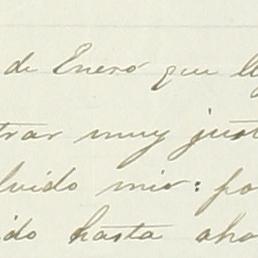 de Enero que ll
trar muy just
lvido mio: po
ido hasta aho